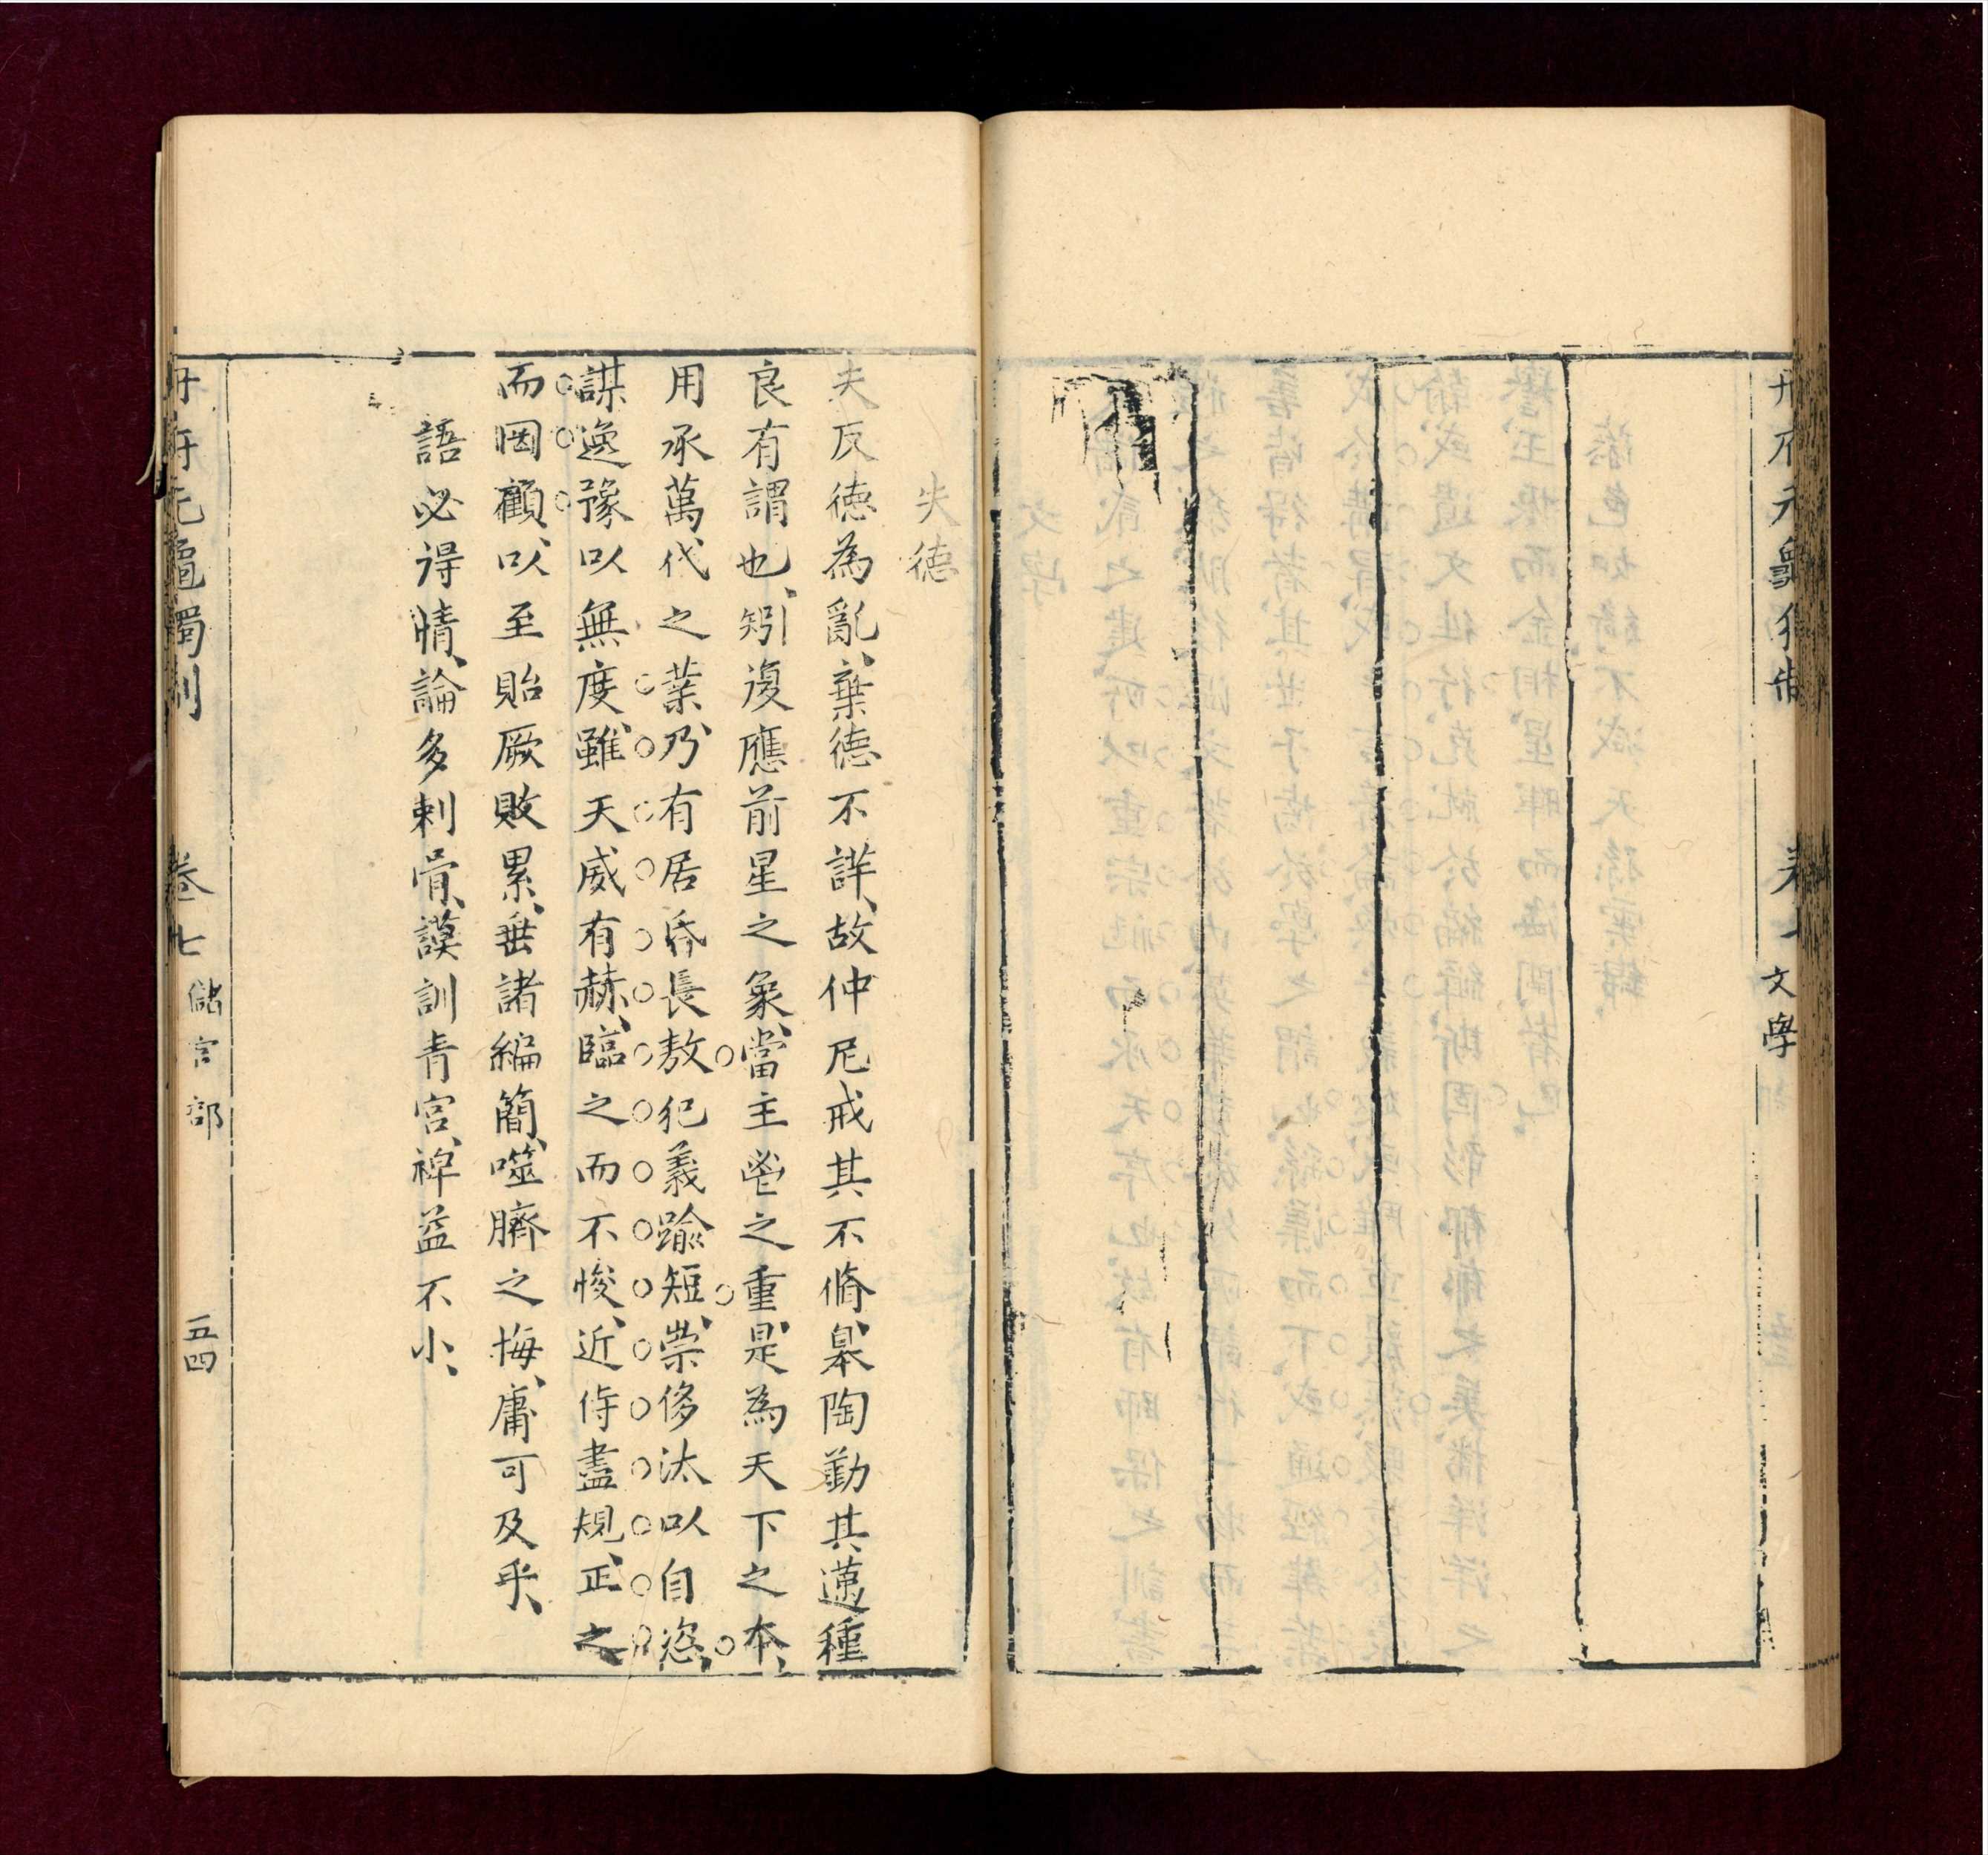 文學
失德
夫反徳為亂、棄徳不詳、故仲尼戒其不脩、臯陶勤其邁種
良有謂也、矧復應前星之象、當主鬯之重、是為天下之本、
用承萬代之業、乃有居昏長敖、犯義踰短、崇侈汰以自恣、
謀逸豫以無度、雖天威有赫、臨之而不悛、近侍盡規、正之
而罔顧、以至貽厥敗累、垂諸編簡、噬臍之悔、庸可及乎、
語必得情、論多刺骨、謨訓青宮、裨益不小、
卷七
儲宮部
五四